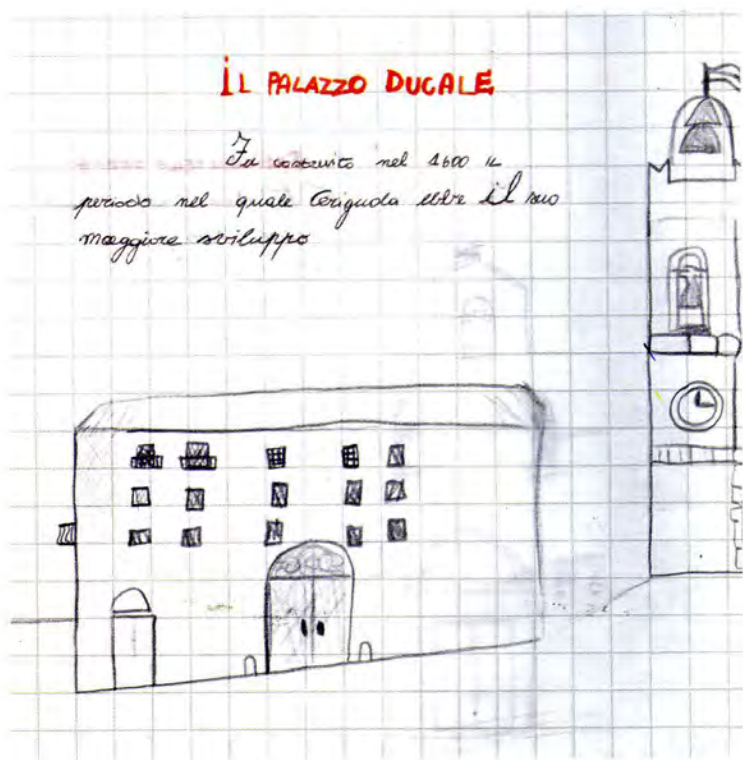 iL PALAZZO DUCALE
Fu costruito nel 1600 il
periodo nel quale Cerignola ebbe il suo
maggiore sviluppo